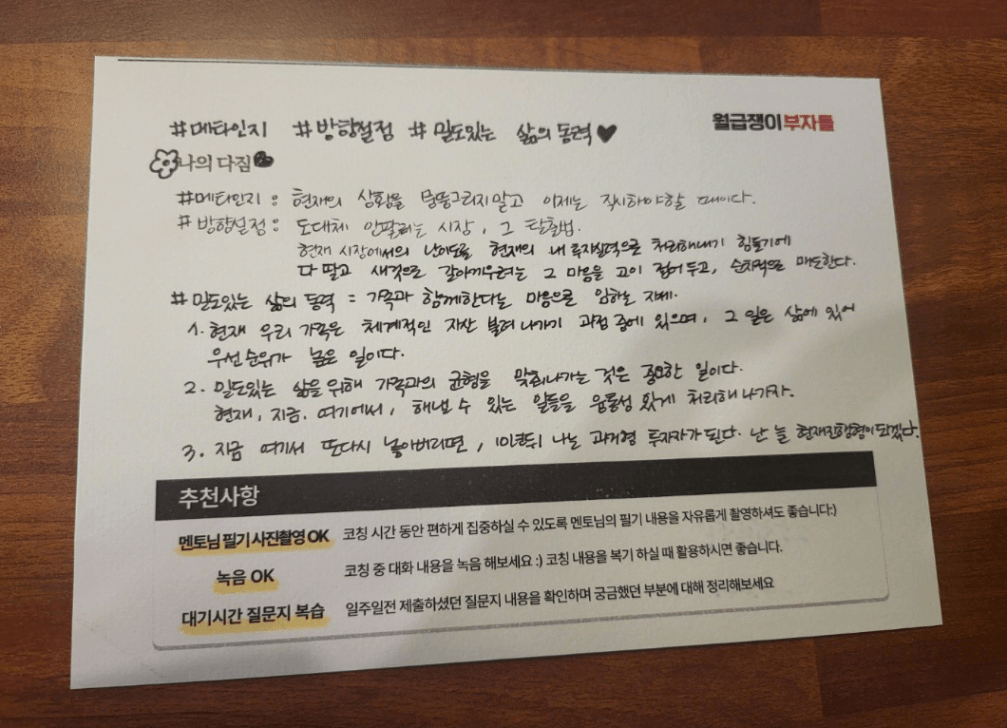 #메타인지 #방향설정 #밀도있는 삶의 동력♥
월급쟁이부자들
나의 다짐
#메타인지 : 현재의 상황을 뭉뚱그리지말고 이제는 직시하야할 때이다.
#방향설정 : 도대체 안팔리는 시장, 그 탈출법
현재 시장에서의 난이도를 현재의 내 투자실력으로 처리해내기 힘들기에
다 팔고 새것으로 갈아끼우려는 그 마음을 고이 접어두고, 순차적으로 매도한다.
#밀도있는 삶의 동력 = 가족과 함께한다는 마음으로 임하는 자세.
1. 현재 우리 가족은 체계적인 자산 불려 나가기 과정 중에 있으며, 그 일은 삶에 있어
우선순위가 높은 일이다.
2. 밀도있는 삶을 위해 가족과의 균형을 맞춰나가는 것은 중요한 일이다.
현재, 지금. 여기에서, 해낼 수 있는 일들을 융통성 있게 처리해 나가자.
3. 지금 여기서 또다시 놓아버리면, 10년뒤 나는 과거형 투자자가 된다. 난 늘 현재진행형이 되겠다.
추천사항
멘토님 필기 사진촬영 OK 코칭 시간 동안 편하게 집중하실 수 있도록 멘토님의 필기 내용을 자유롭게 촬영하셔도 좋습니다:)
녹음 OK 코칭 중 대화 내용을 녹음 해보세요 :) 코칭 내용을 복기 하실 때 활용하시면 좋습니다.
대기시간 질문지 복습 일주일전 제출하셨던 질문지 내용을 확인하며 궁금했던 부분에 대해 정리해보세요